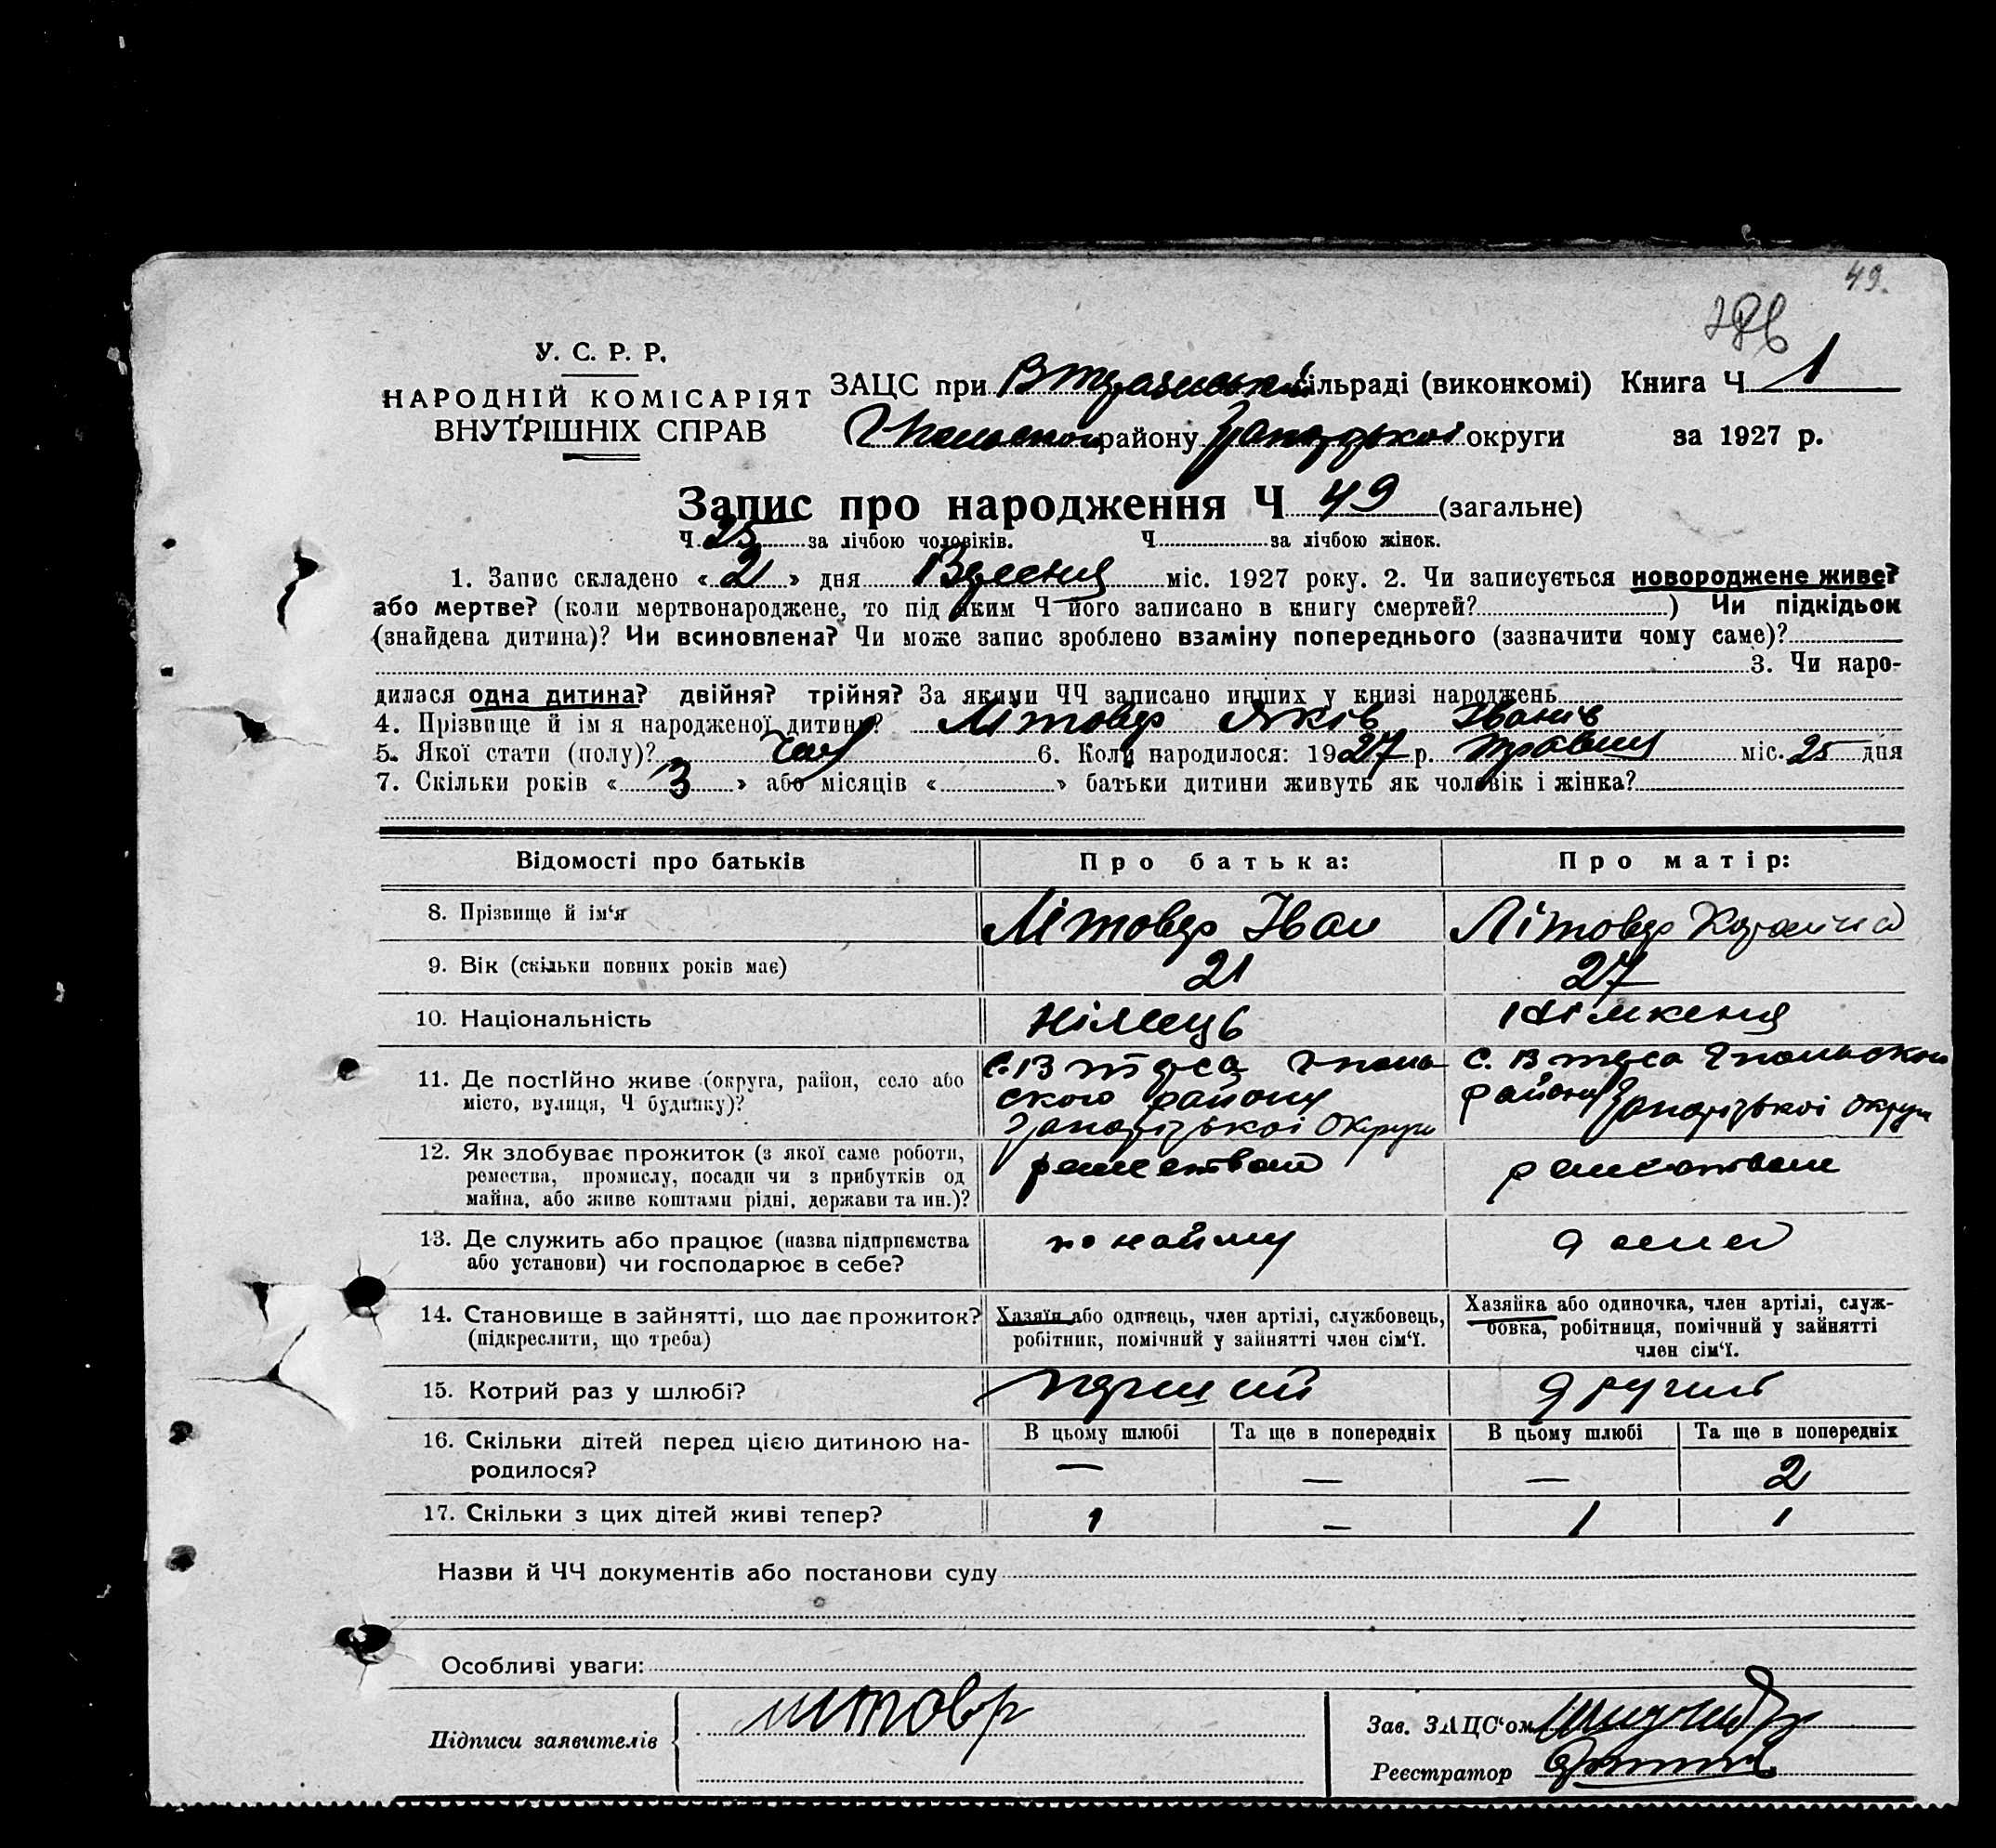 49.
286
У. С. Р. Р.
НАРОДНІЙ КОМІСАРІЯТ
ВНУТРІШНІХ СПРАВ
ЗАЦС при сільраді (виконкомі) Книга Ч. 1
району округи за 1927 р.
Запис про народження Ч 49 (загальне)
Ч. 25 за лічбою чоловіків. Ч. за лічбою жінок.
1. Запис складено « 2 » дня Вересня міс. 1927 року. 2. Чи записується новороджене живе?
або мертве? (коли мертвонароджене, то під яким Ч його записано в книгу смертей? ) Чи підкідьок
(знайдена дитина)? Чи всиновлена? Чи може запис зроблено взаміну попереднього (зазначити чому саме)?
3. Чи наро-
дилася одна дитина? двійня? трійня? За якими ЧЧ записано инших у книзі народжень
4. Прізвище й ім я народженої дитини? Літовер Яків Іванів
5. Якої стати (полу)? чол 6. Коли народилося: 1927 р. травня міс. 25 дня
7. Скільки років « 3 » або місяців « » батьки дитини живуть як чоловік і жінка?
Відомості про батьків Про батька: Про матір:
8. Прізвище й ім‘я Літовер Іван Літовер
9. Вік (скільки повних років має) 21 27
10. Національність німець німкеня
11. Де постійно живе (округа, район, село або
місто, вулиця, Ч будинку)?
ського району
Запорізької Округи
району Запорізької Округи
12. Як здобуває прожиток (з якої саме роботи,
ремества, промислу, посади чи з прибутків од
майна, або живе коштами рідні, держави та ин.)?
ремеством ремеством
13. Де служить або працює (назва підприємства
або установи) чи господарює в себе?
по найму дома
14. Становище в зайнятті, що дає прожиток?
(підкреслити, що треба)
Хазяїн або одинець, член артілі, службовець,
робітник, помічний у зайнятті член сім‘ї.
Хазяйка або одиночка, член артілі, служ-
бовка, робітниця, помічний у зайнятті
член сім‘ї.
15. Котрий раз у шлюбі? перший другий
16. Скільки дітей перед цією дитиною на-
родилося?
В цьому шлюбі Та ще в попередніх В цьому шлюбі Та ще в попередніх
— — — 2
17. Скільки з цих дітей живі тепер? 1 — 1 1
Назви й ЧЧ документів або постанови суду
Особливі уваги:
Підписи заявителів
Зав. ЗАЦС‘ом
Реєстратор